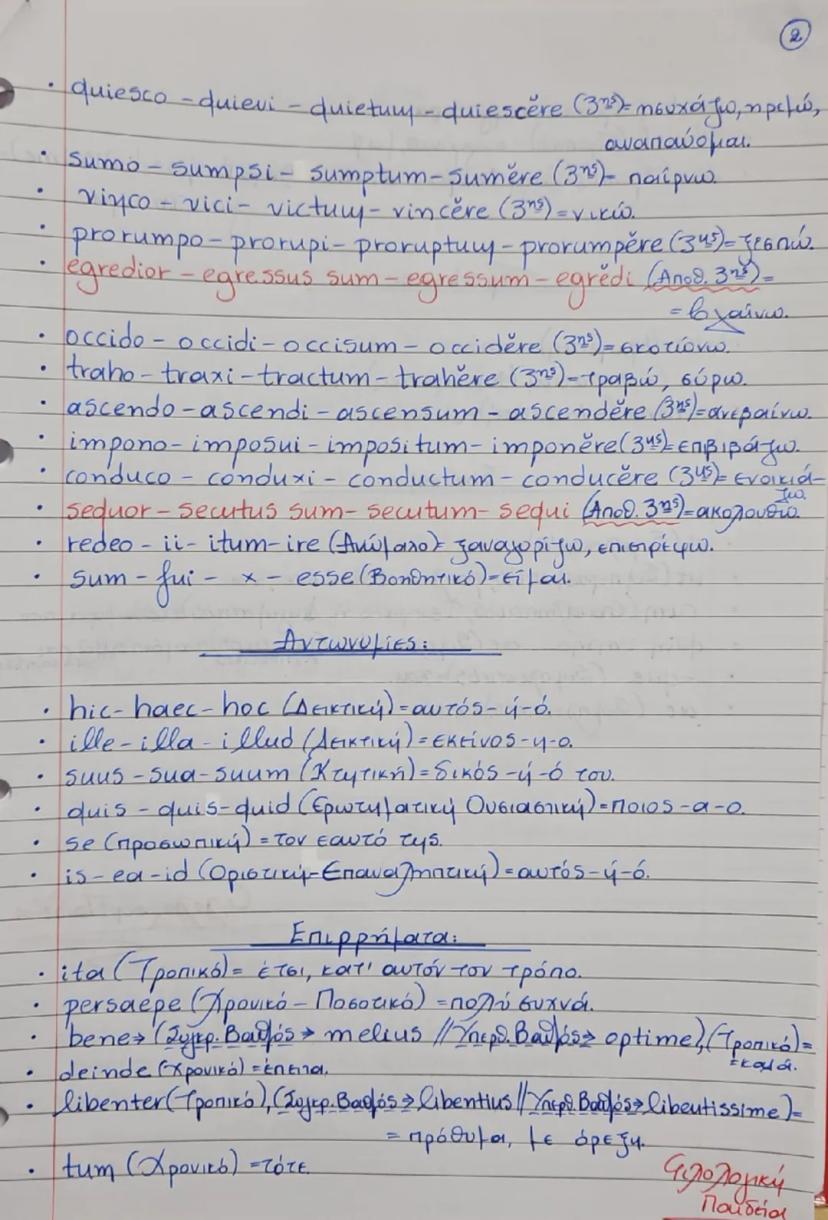 2
• quiesco - quievi - quietum - quiescĕre (3ης)= ησυχάζω, ηρεμώ,
αναπαύομαι.
• sumo - sumpsi - sumptum - sumĕre (3ης)= παίρνω.
• vinco - vici - victum - vincĕre (3ης)= νικώ.
• prorumpo - prorupi - proruptum - prorumpĕre (3ης)= ξεσπώ.
• egredior - egressus sum - egressum - egrĕdi (Αποθ. 3ης)=
= βγαίνω.
• occido - occidi - occisum - occidĕre (3ης)= σκοτώνω.
• traho - traxi - tractum - trahĕre (3ης)= τραβώ, σύρω.
• ascendo - ascendi - ascensum - ascendĕre (3ης)= ανεβαίνω.
• impono - imposui - impositum - imponĕre (3ης)= επιβιβάζω.
• conduco - conduxi - conductum - conducĕre (3ης)= ενοικιά-
ζω.
• sequor - secutus sum - secutum - sequi (Αποθ. 3ης)= ακολουθώ
• redeo - ii - itum - ire (Ανώμαλο)= ξαναγυρίζω, επιστρέφω.
• sum - fui - x - esse (Βοηθητικό)= είμαι.
Αντωνυμίες:
• hic - haec - hoc (Δεικτική)= αυτός-ή-ό.
• ille - illa - illud (Δεικτική)= εκείνος-η-ο.
• suus - sua - suum (Κτητική)= δικός-ή-ό του.
• quis - quis - quid (Ερωτηματική Ουσιαστική)= ποιος-α-ο.
• se (προσωπική)= τον εαυτό της.
• is - ea - id (Οριστική-Επαναληπτική)= αυτός-ή-ό.
Επιρρήματα:
• ita (Τροπικό)= έτσι, κατ' αυτόν τον τρόπο.
• persaepe (Χρονικό - Ποσοτικό)= πολύ συχνά.
• bene→ (Συγκρ. Βαθμός→ melius // Υπερθ. Βαθμός→ optime), (Τροπικό)=
=καλά.
• deinde (Χρονικό)= έπειτα.
• libenter (Τροπικό), (Συγκρ. Βαθμός→ libentius // Υπερθ. Βαθμός→ libentissime)=
= πρόθυμα, με όρεξη.
• tum (Χρονικό)= τότε.
Φιλολογική
Παιδεία